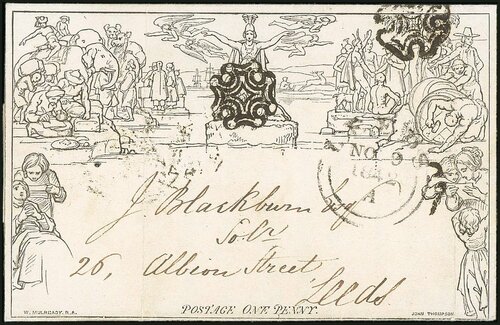 NO 9
A
J. Blackburn Esq
Solr
26, Albion Street
Leeds
POSTAGE ONE PENNY.
W. MULREADY, R.A.
JOHN THOMPSON.